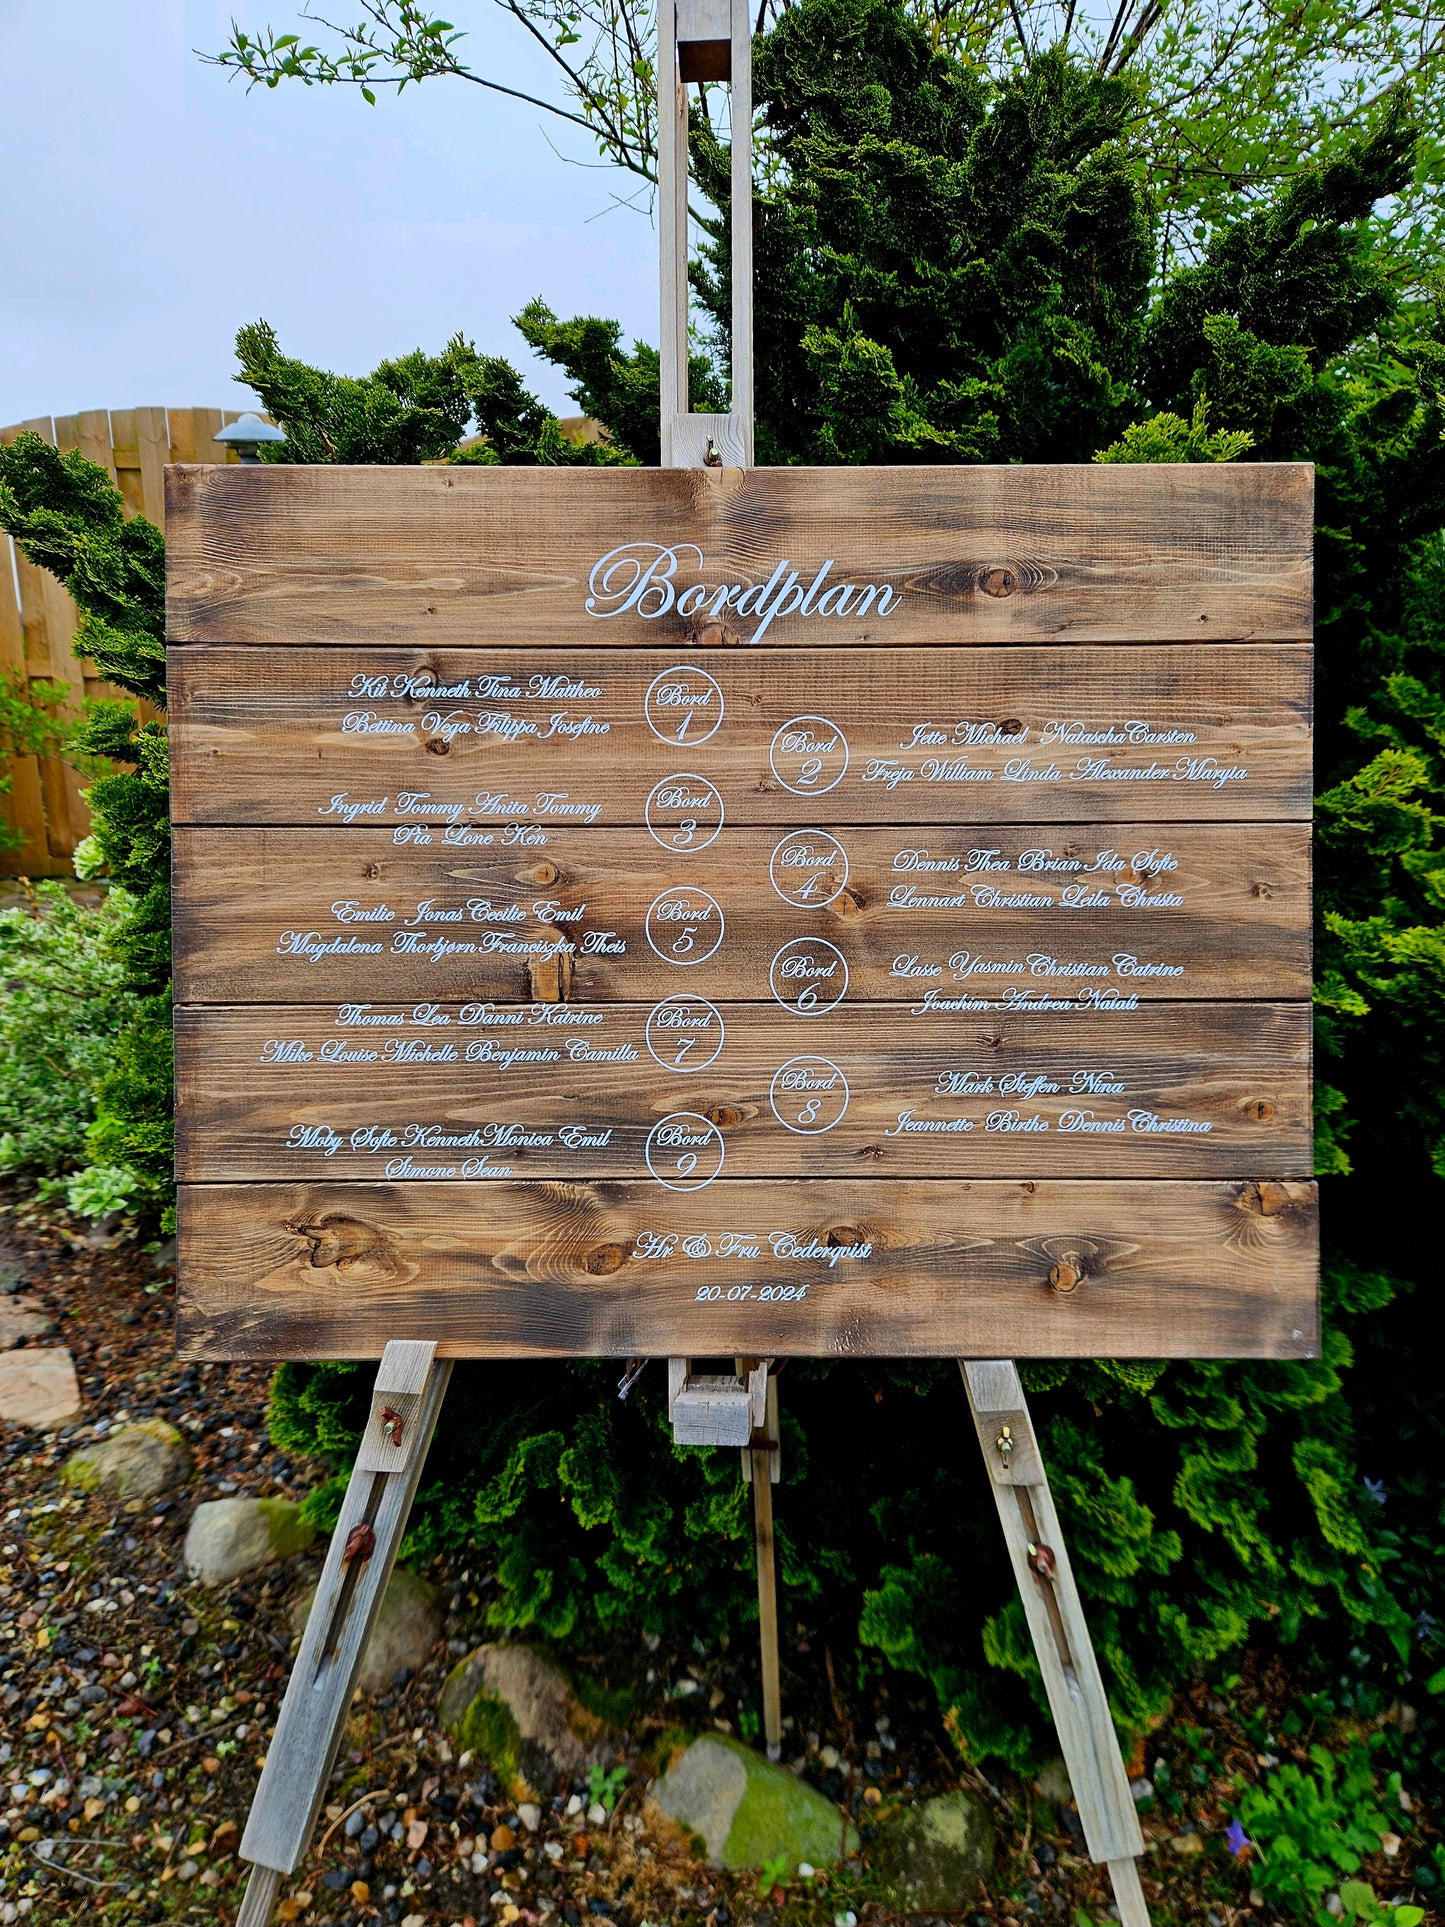 Bordplan
Kit Kenneth Tina Mattheo
Bettina Vega Filippa Josefine
Bord
1
Jette Michael Natascha Carsten
Freja William Linda Alexander Maryia
Bord
2
Ingrid Tommy Anita Tommy
Pia Lone Ken
Bord
3
Dennis Thea Brian Ida Sofie
Lennart Christian Leila Christa
Bord
4
Emilie Jonas Cecilie Emil
Magdalena Thorbjørn Franciszka Theis
Bord
5
Lasse Yasmin Christian Catrine
Joachim Andrea Natali
Bord
6
Thomas Lea Danni Katrine
Mike Louise Michelle Benjamin Camilla
Bord
7
Mark Steffen Nina
Jeannette Birthe Dennis Christina
Bord
8
Moby Sofie Kenneth Monica Emil
Simone Sean
Bord
9
Hr & Fru Cederqvist
20-07-2024